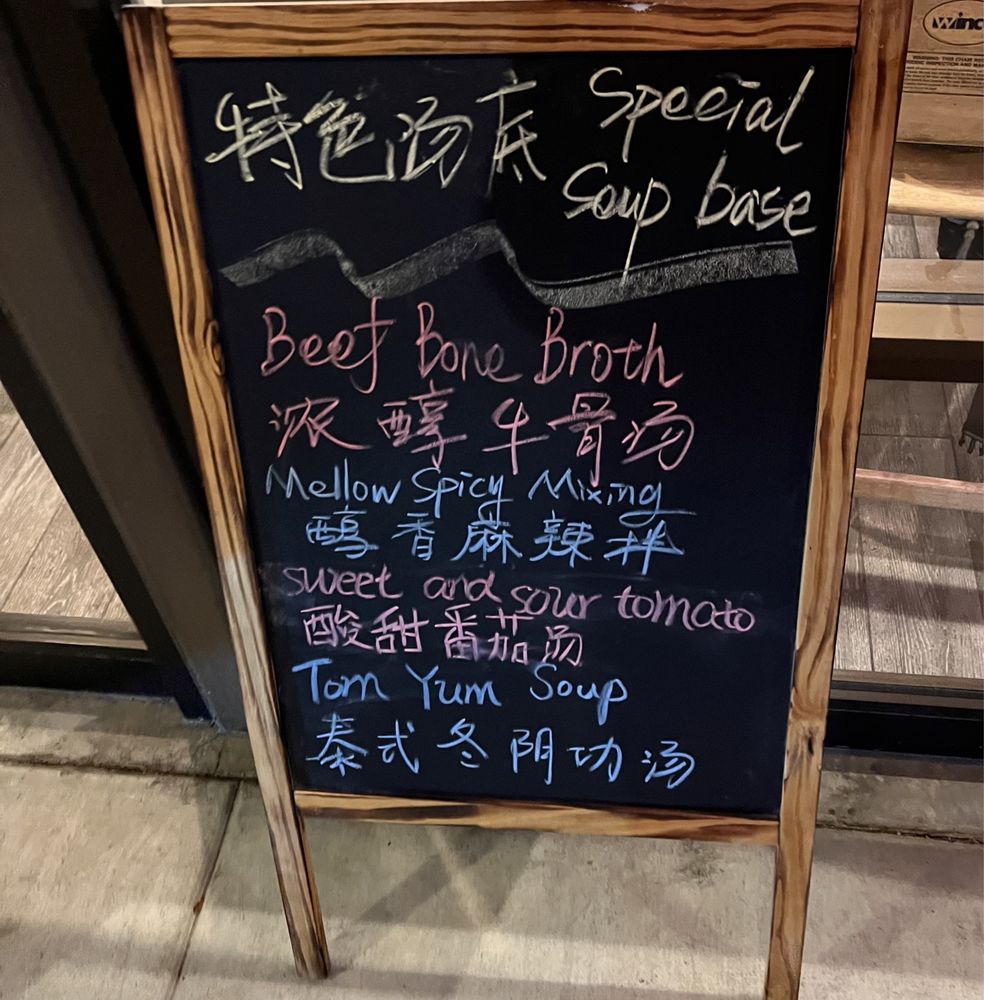 特色汤底 Special
Soup base
Beef Bone Broth
浓醇牛骨汤
Mellow Spicy Mixing
醇香麻辣拌
sweet and sour tomato
酸甜番茄汤
Tom Yum Soup
泰式冬阴功汤